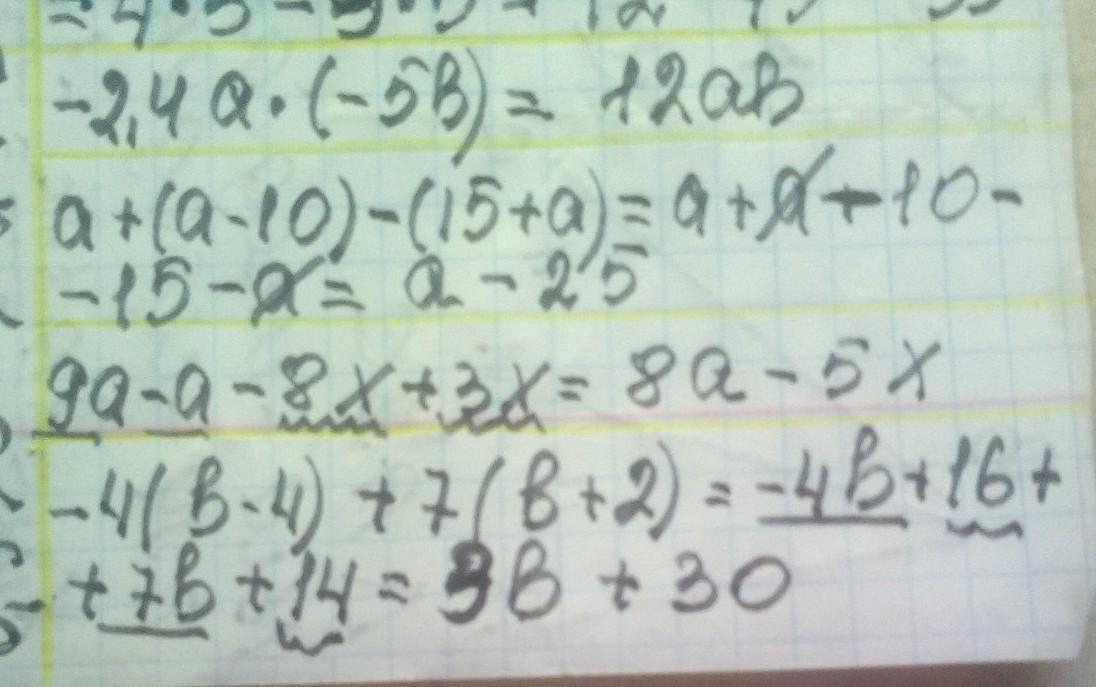 -2,4a·(-5b)= 12ab
a+(a-10)-(15+a)=a+a-10-
-15-a= a-25
9a-a-8x+3x= 8a-5x
-4(b-4)+7(b+2)=-4b+16+
+7b+14=3b+30